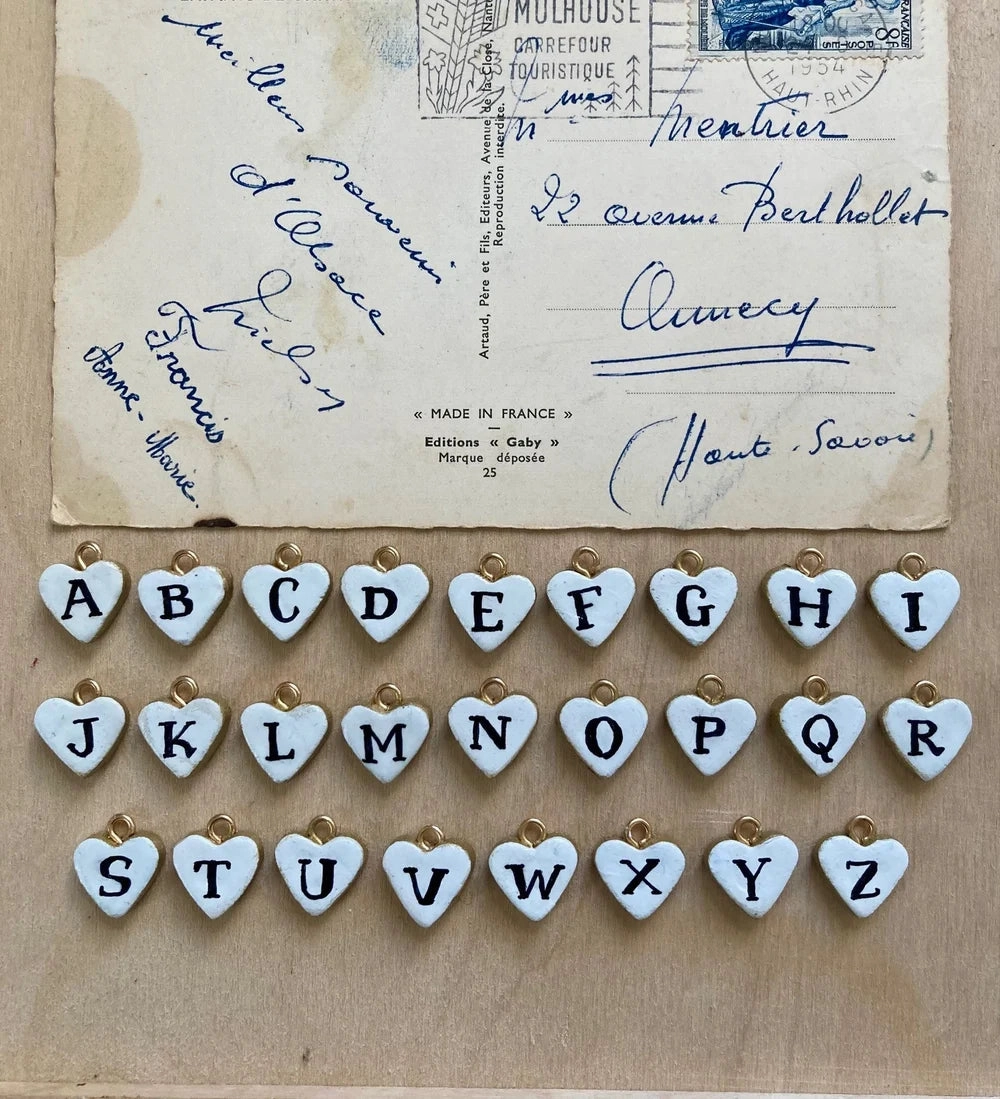 Meilleurs
souvenirs
d'Alsace
Francis
Anne-Marie.
MULHOUSE
CARREFOUR
TOURISTIQUE
FRANÇAISE
POSTES
8F
1954
HAUT-RHIN
Artaud, Père et Fils, Editeurs, Avenue de la Close, Nantes
Reproduction interdite.
Mentrier
22 avenue Berthollet
Annecy
(Haute-Savoie)
« MADE IN FRANCE »
Editions « Gaby »
Marque déposée
25
A B C D E F G H I
J K L M N O P Q R
S T U V W X Y Z